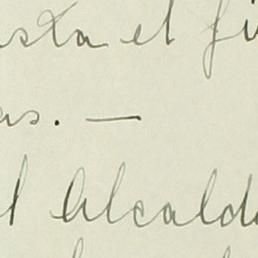 sta el fi
as. —
el Alcalde